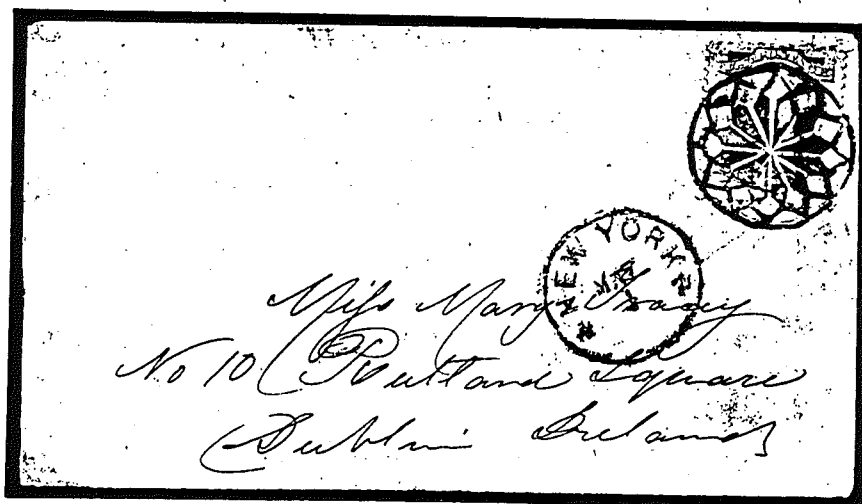 NEW YORK
Miss Mary
No 10 Rutland Square
Dublin Ireland